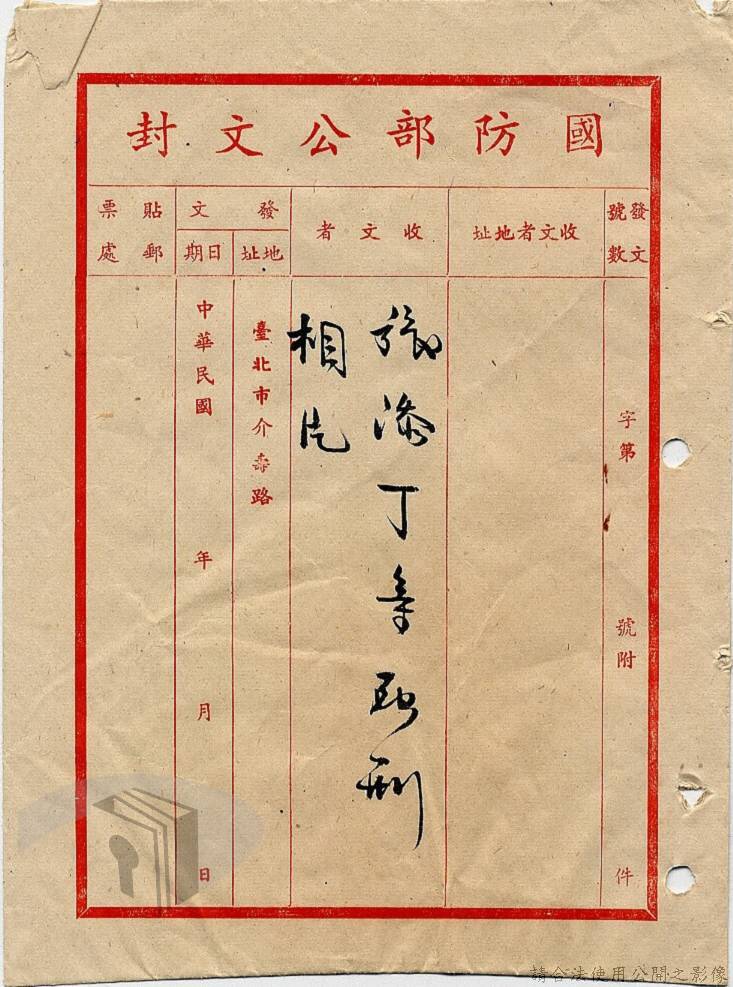 國防部公文封
發文
號數
收文者地址
收文者
發文
地址
日期
貼郵
票處
字第 號附 件
張添丁等執刑
相片
臺北市介壽路
中華民國 年 月 日
請合法使用公開之影像